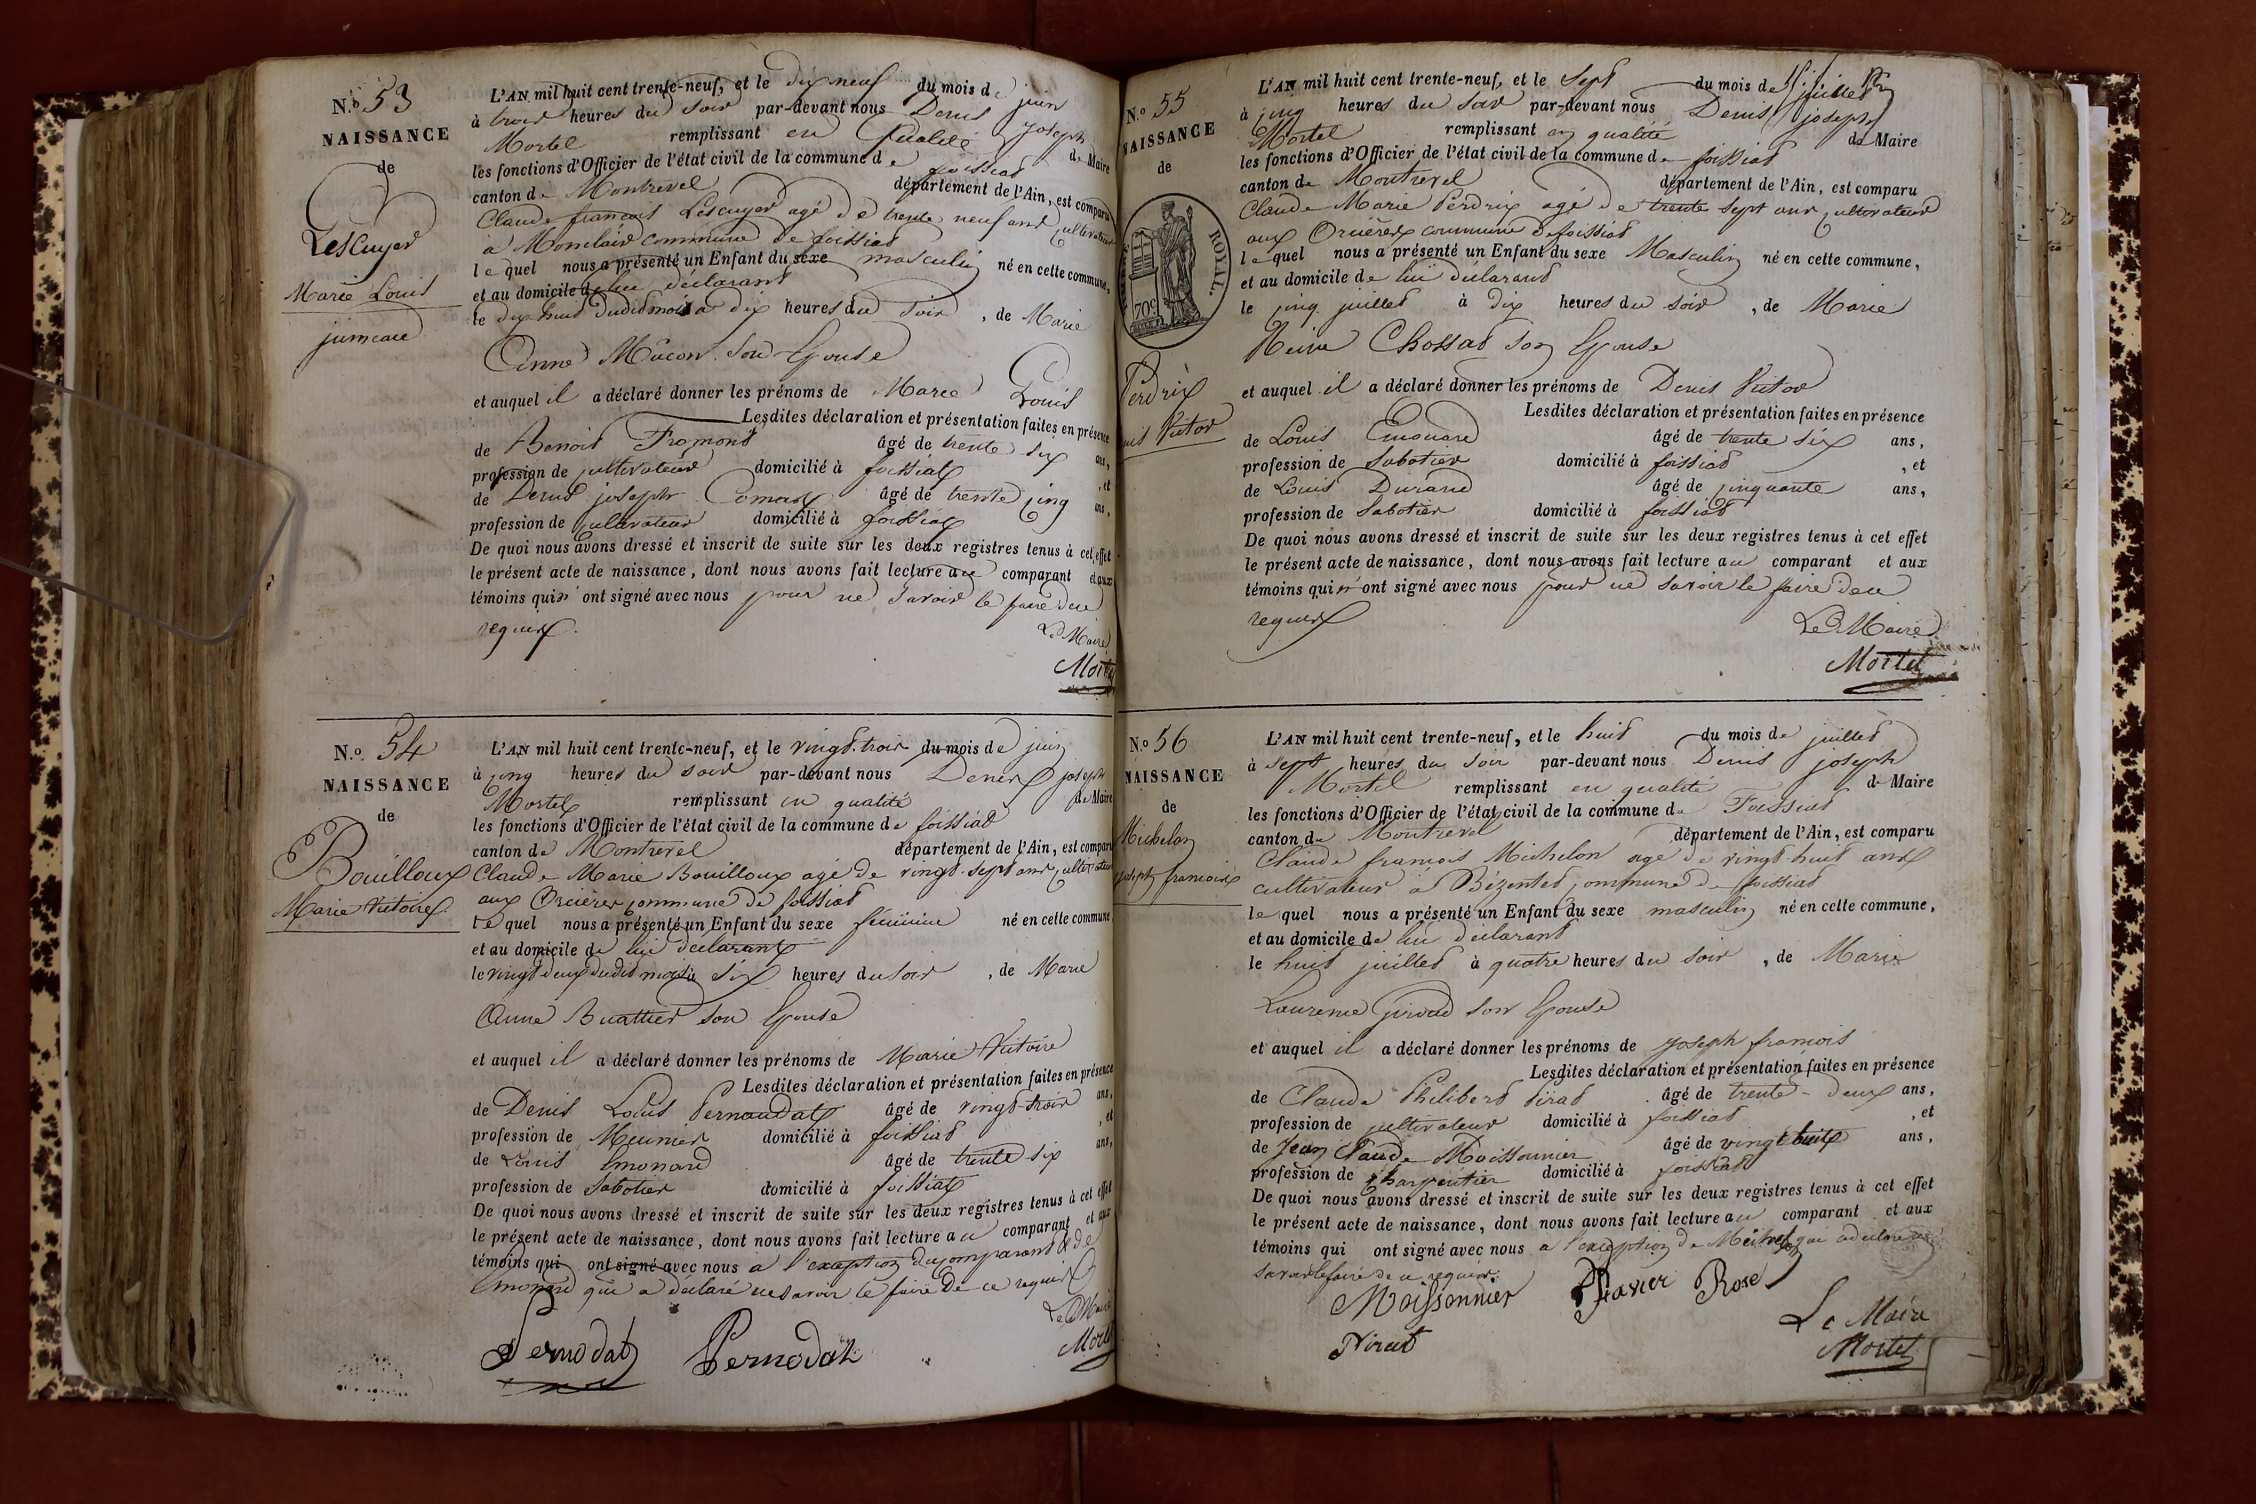 N.º 53
NAISSANCE
de
Lescuyer
Marie Louis
jumeau
L'AN mil huit cent trente-neuf, et le dix neuf du mois de juin
à trois heures du soir par-devant nous Denis joseph
Mortel remplissant en qualité de Maire
les fonctions d'Officier de l'état civil de la commune de foissiat
canton de Montrevel département de l'Ain, est comparu
Claude françois Lescuyer agé de trente neuf ans cultivateur
a Monclair commune de foissiat
lequel nous a présenté un Enfant du sexe masculin né en cette commune,
et au domicile de lui déclarant
le dix huit dudit mois à dix heures du soir, de Marie
Anne Mâcon son Epouse
et auquel il a déclaré donner les prénoms de Marie Louis
Lesdites déclaration et présentation faites en présence
de Benoit Fromont âgé de trente six ans,
profession de cultivateur domicilié à foissiat, et
de Denis joseph Comas âgé de trente cinq ans,
profession de cultivateur domicilié à foissiat
De quoi nous avons dressé et inscrit de suite sur les deux registres tenus à cet effet
le présent acte de naissance, dont nous avons fait lecture au comparant et aux
témoins qui n'ont signé avec nous pour ne savoir le faire de ce
requis.
Le Maire
Mortel
N.º 54
NAISSANCE
de
Bouilloux
Marie Victoire
L'AN mil huit cent trente-neuf, et le vingt trois du mois de juin
à cinq heures du soir par-devant nous Denis joseph
Mortel remplissant en qualité de Maire
les fonctions d'Officier de l'état civil de la commune de foissiat
canton de Montrevel département de l'Ain, est comparu
Claude Marie Bouilloux agé de vingt sept ans cultivateur
aux Orcières commune de foissiat
lequel nous a présenté un Enfant du sexe féminine né en cette commune
et au domicile de lui déclarant
le vingt deux dudit mois à six heures du soir, de Marie
Anne Buattier son Epouse
et auquel il a déclaré donner les prénoms de Marie Victoire
Lesdites déclaration et présentation faites en présence
de Denis Louis Pernaudat âgé de vingt-trois ans,
profession de Meunier domicilié à foissiat, et
de Louis Emonard âgé de trente six ans,
profession de Sabotier domicilié à foissiat
De quoi nous avons dressé et inscrit de suite sur les deux registres tenus à cet effet
le présent acte de naissance, dont nous avons fait lecture au comparant et aux
témoins qui ont signé avec nous a l'exception du comparant & de
Emonard qui a déclaré ne savoir le faire de ce requis
Le Maire
Pernodat Pernodat Mortel
N.º 55
NAISSANCE
de
ROYAL.
70c
Perdrix
Denis Victor
L'AN mil huit cent trente-neuf, et le sept du mois de juillet
à cinq heures du soir par-devant nous Denis joseph
Mortel remplissant en qualité de Maire
les fonctions d'Officier de l'état civil de la commune de foissiat
canton de Montrevel département de l'Ain, est comparu
Claude Marie Perdrix agé de trente sept ans cultivateur
aux Orcières commune de foissiat
lequel nous a présenté un Enfant du sexe Masculin né en cette commune,
et au domicile de lui déclarant
le cinq juillet à dix heures du soir, de Marie
Reine Chossat son Epouse
et auquel il a déclaré donner les prénoms de Denis Victor
Lesdites déclaration et présentation faites en présence
de Louis Emonard âgé de trente six ans,
profession de Sabotier domicilié à foissiat, et
de Louis Durand âgé de cinquante ans,
profession de Sabotier domicilié à foissiat
De quoi nous avons dressé et inscrit de suite sur les deux registres tenus à cet effet
le présent acte de naissance, dont nous avons fait lecture au comparant et aux
témoins qui n'ont signé avec nous pour ne savoir le faire de ce
requis
Le Maire
Mortel
N.º 56
NAISSANCE
de
Michelon
joseph françois
L'AN mil huit cent trente-neuf, et le huit du mois de juillet
à sept heures du soir par-devant nous Denis joseph
Mortel remplissant en qualité de Maire
les fonctions d'Officier de l'état civil de la commune de Foissiat
canton de Montrevel département de l'Ain, est comparu
Claude françois Michelon agé de vingt huit ans
cultivateur à Bézentet commune de foissiat
lequel nous a présenté un Enfant du sexe masculin né en cette commune,
et au domicile de lui déclarant
le huit juillet à quatre heures du soir, de Marie
Laurence Giroud son Epouse
et auquel il a déclaré donner les prénoms de joseph françois
Lesdites déclaration et présentation faites en présence
de Claude Philibert Pirat âgé de trente-deux ans,
profession de cultivateur domicilié à foissiat, et
de Jean Claude Moissonnier âgé de vingt huit ans,
profession de charpentier domicilié à foissiat
De quoi nous avons dressé et inscrit de suite sur les deux registres tenus à cet effet
le présent acte de naissance, dont nous avons fait lecture au comparant et aux
témoins qui ont signé avec nous a l'exception de qui a déclaré ne
savoir le faire de ce requis.
Moissonnier Rose
Pirat
Le Maire
Mortel